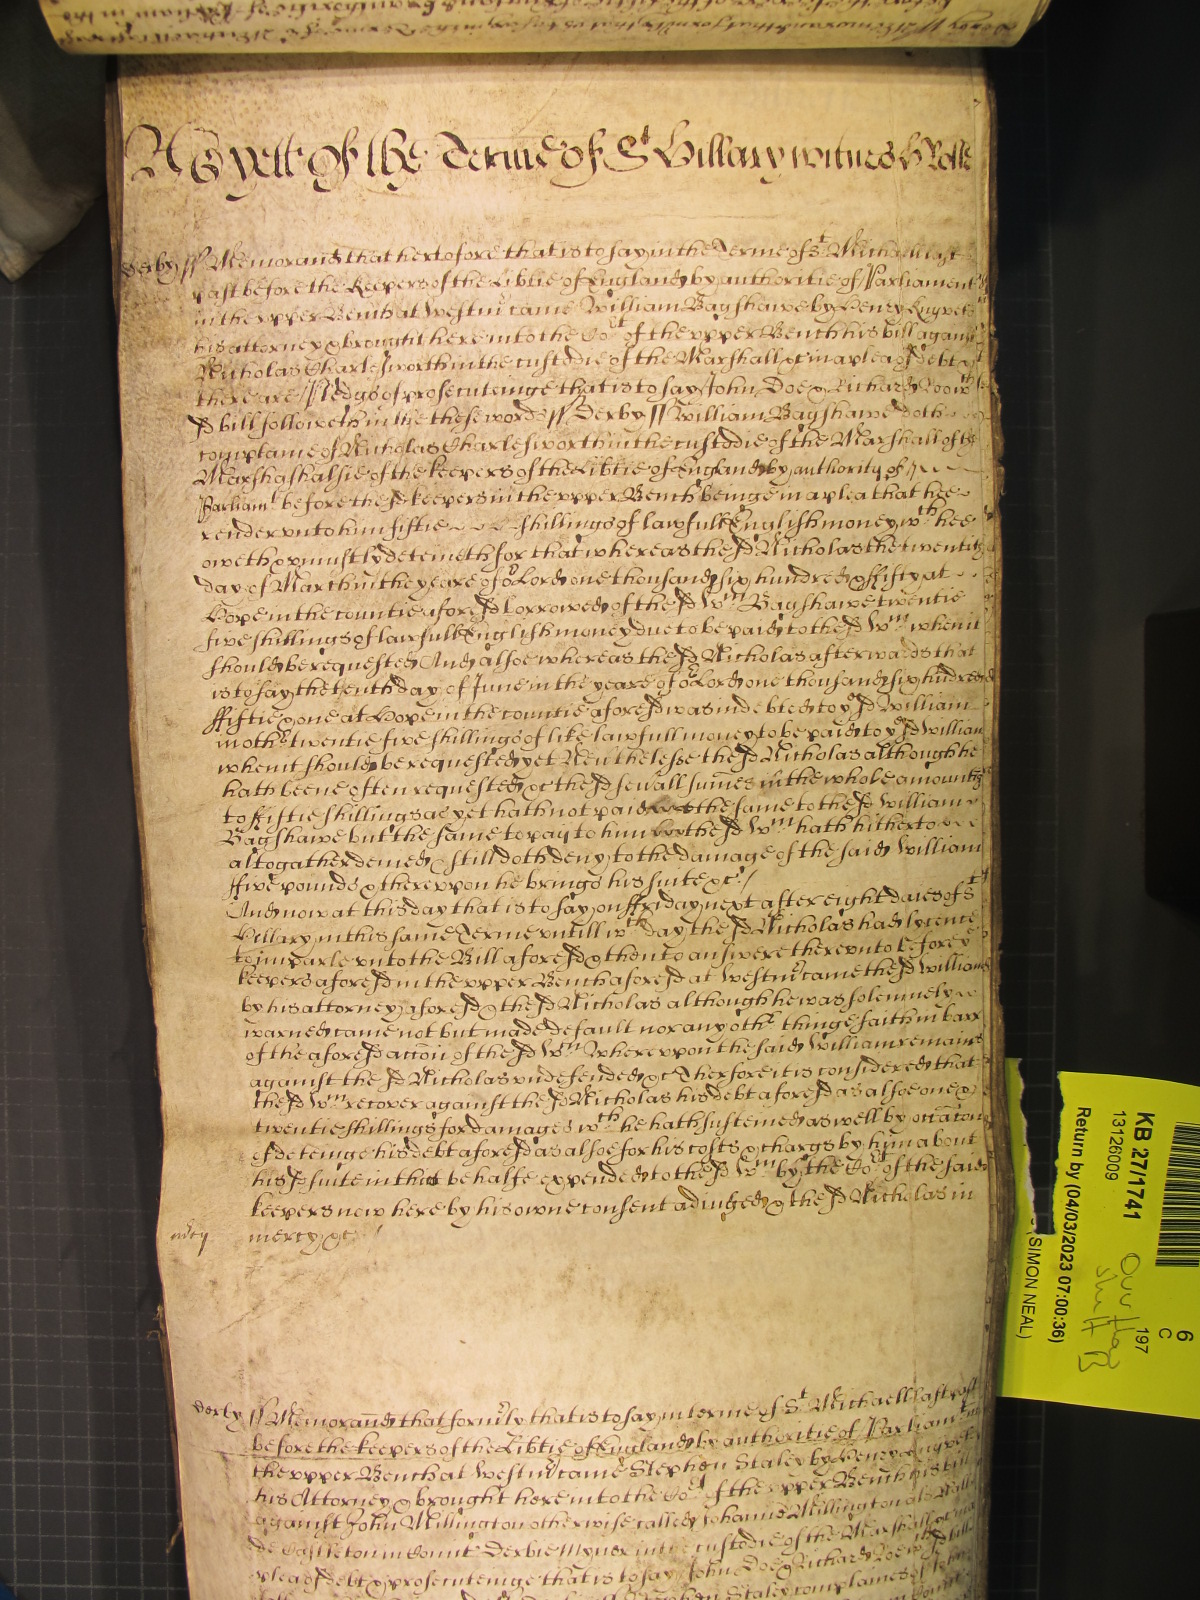 As yett of the Terme of St Hillary witnes H Rolle
Derby ss Memorand that heretofore that is to say in the Terme of St Michaell last
past before the Keepers of the Libtie of England by authoritie of Parliament
in the upper Bench at Westmr came William Bagshawe by Henry
his attorney & brought here into the Cort of the upper Bench his bill against
Nicholas Charlesworth in the custodie of the Marshall &c in a plea of debt &
there are Pledgs of prosecuteinge that is to say John Doe & Richard Roo wch
sd bill followeth in the these words ss Derby ss William Bagshawe doth
complaine of Nicholas Charlesworth in the custodie of the Marshall of the
Marshashalsie of the keepers of the Libtie of England by authority of
Parliamt before the sd keepers in the upper Bench beinge in a plea that hee
render unto him fiftie shillings of lawfull English money wch hee
oweth & uniustly deteineth for that whereas the sd Nicholas the twentith
day of March in the yeare of or Lord one thousand six hundred & ffifty at
Hope in the countie aforesd borrowed of the sd Wm Bagshawe twentie
five shillings of lawfull English money due to be paid to the sd Wm when it
should be requested And alsoe whereas the sd Nicholas afterwards that
is to say the tenth day of June in the yeare of or Lord one thousand six hundred
ffiftie & one at Hope in the countie aforesd was indebted to ye sd William
in othr twentie five shillings of like lawfull money to be paid to ye sd William
when it should be requested yet Neuthelesse the sd Nicholas although he
hath beene often requested &c the sd seuall sumes in the whole amounth
to ffiftie shillings as yet hath not paid the same to the sd William
Bagshawe but the same to pay to him the sd Wm hath hitherto
altogather denied & still doth deny to the damage of the said William
ffive pounds & thereuppon he brings his suite &c
And now at this day that is to say on ffriday next after eight daies of St
Hillary in this same Terme untill wch day the sd Nicholas had lycence
to imparle unto the Bill aforesd & then to answere thereunto before ye
keepers aforesd in the upper Bench aforesd at Westmr came the sd William
by his attorney aforesd & the sd Nicholas although he was solemnely
warned came not but made default nor any othr thinge saith in barr
of the aforesd accon of the sd Wm Whereuppon the said William remaines
against the sd Nicholas undefended &c Therfore it is considered that
the sd Wm recover against the sd Nicholas his debt aforesd as alsoe one &
twentie shillings for damages wch he hath susteined as well by occacon
of deteinge his debt aforesd as alsoe for his costs & chargs by him about
his sd suite in that behalfe expended to the sd Wm by the Cort of the said
keepers now here by his owne consent adiudged & the sd Nicholas in
mercy mercy &c
Derby ss Memorand that formrly that is to say in terme of St Michaell last past
before the keepers of the Libtie of England by authoritie of Parliamt in
the upper Bench at Westmr came Stephen Staley by Henry
his Attorney & brought here into the Cort of the upper Bench his bill
against John Millington otherwise called Johannes Millington
de Castleton in Comit Derbie Myner in the custodie of the Marshall &c in a
plea of debt & prosecuteinge that is to say John Doe & Richard Roe
Stephen Staley complaines of John
KB 27/1741
13126009
Return by (04/03/2023 07:00:36)
(SIMON NEAL)
6
C
197